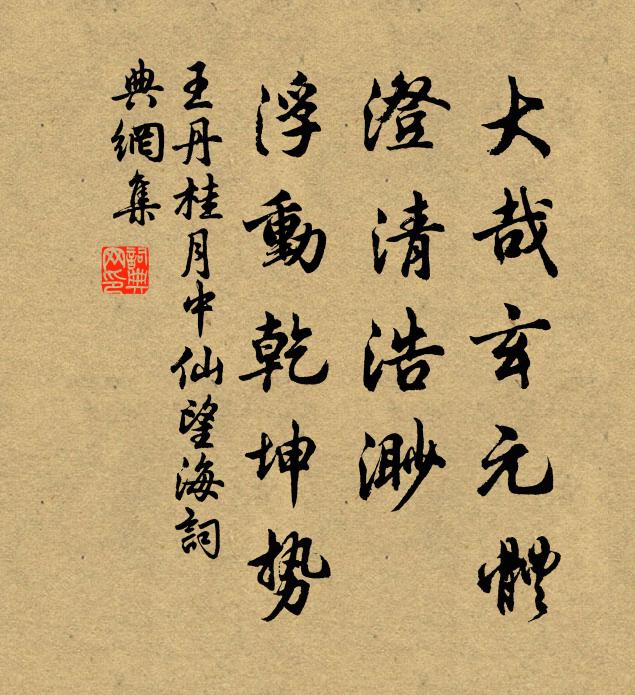 大哉玄元體
澄清浩渺
浮動乾坤势
王丹桂月中仙望海詞
典網集
詞典网印